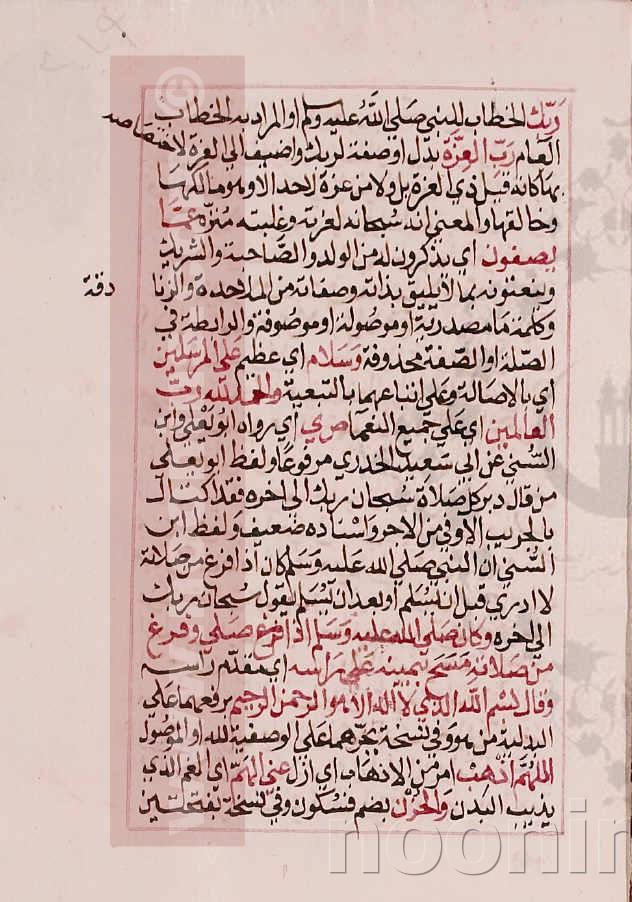 ربّك الخطاب للنبي صلي الله عليه وسلم او المراد به الخطاب
العام ربّ العزّة بدل او صفة لربك واضيف الي العزة لاختصاصه
بها كانه قيل ذي العزة بل ولا من عزة لاحد الا وهو مالكها
وخالقها والمعني انه سبحانه لعزته وغلبته منزه عمّا
يصفون اي يذكرون له من الولد والصّاحبة والشريك
وينعتونه بما لا يليق بذاته وصفاته من الملاحدة والزنا
دقة
وكلمة ما مصدرية او موصولة او موصوفة والرابطة في
الصّلة او الصّفة محذوفة وسلام اي عظيم علي المرسلين
اي بالاصالة وعلي اتباعهم بالتبعية والحمد لله ربّ
العالمين اي علي جميع النعم ص ي اي رواه ابو يعلي وابن
السّني عن ابي سعيد الخدري مرفوعا ولفظ ابو يعلي
من قال دبر كل صلاة سبحان ربك الي اخره فقد اكتال
بالجريب الاوفي من الاجر واسناده ضعيف ولفظ ابن
السّني ان النبي صلي الله عليه وسلم كان اذا فرغ من صلاته
لا ادري قبل ان يسلم او بعد ان يسلم يقول سبحان ربك
الي اخره وكان صلي الله عليه وسلم اذا فرغ صلي وفرغ
من صلاته مسح بيمينه علي راسه اي مقدم راسه
وقال بسم الله الذي لا اله الا هو الرحمن الرحيم برفعهما علي
البدلية من هو وفي نسخة بجرّهما علي الوصفية لله او الموصول
اللهمّ اذهب امر من الاذهاب اي ازل عني الهمّ اي الغم الذي
يذيب البدن والحزن بضم فسكون وفي نسخة بفتحتين
noorin